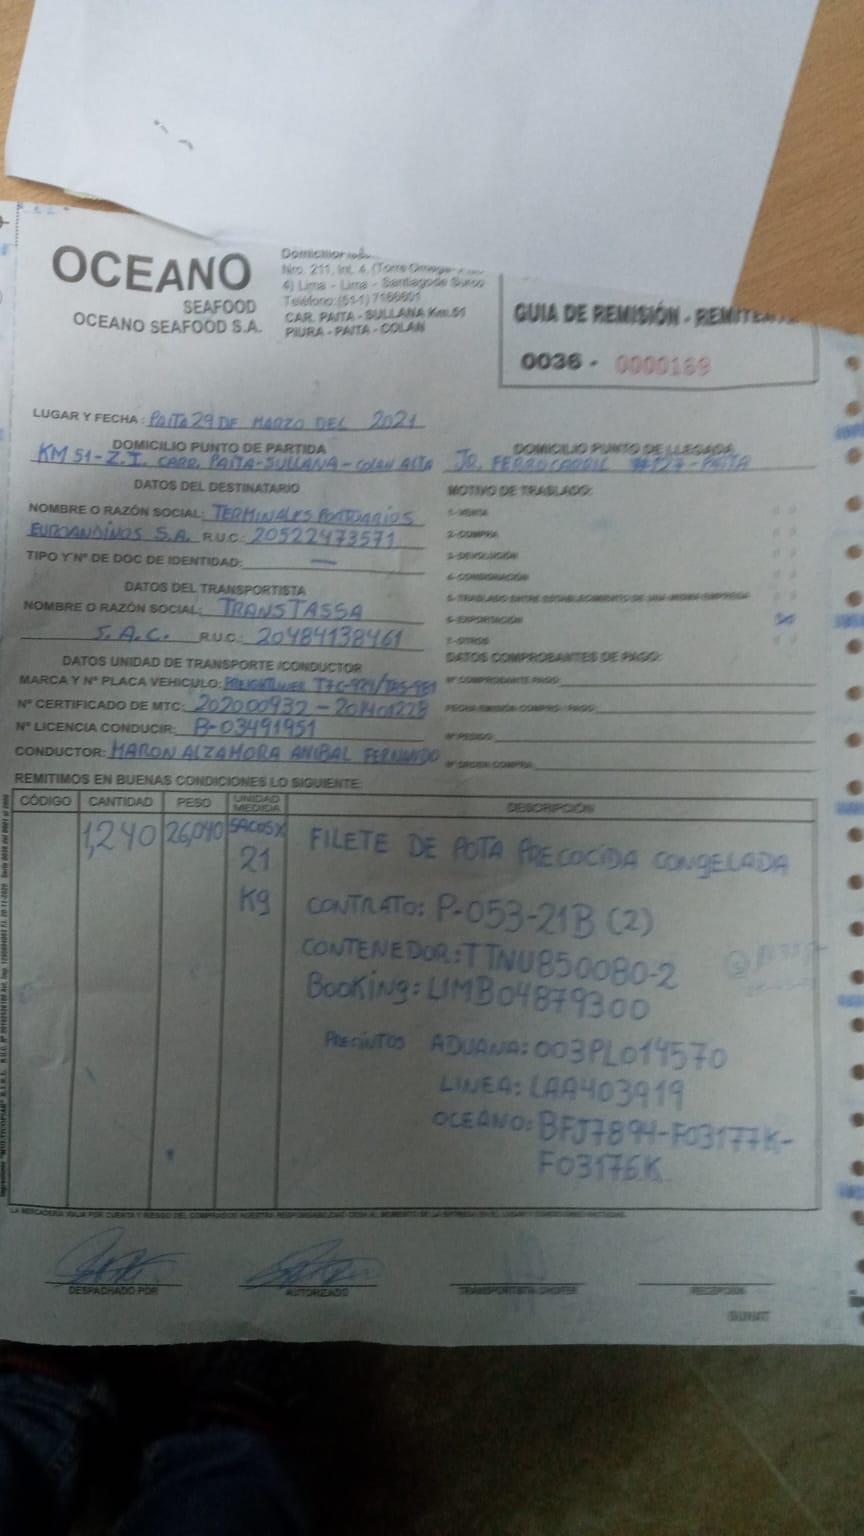 OCEANO
SEAFOOD
OCEANO SEAFOOD S.A.
Nro. 211, Int. 4, (Torre Omega
4) Lima - Lima - Santiago de Surco
Teléfono: (51-1) 7166601
CAR. PAITA - SULLANA Km.51
PIURA - PAITA - COLAN
GUIA DE REMISIÓN - REMITENTE
0036 - 0000169
LUGAR Y FECHA: PAITA 29 DE MARZO DEL 2021
DOMICILIO PUNTO DE PARTIDA
KM 51-Z.I. CARR. PAITA-SULLANA-COLAN ALTA
DOMICILIO PUNTO DE LLEGADA
JR. FERROCARRIL #127-PAITA
DATOS DEL DESTINATARIO
NOMBRE O RAZÓN SOCIAL: TERMINALES PORTUARIOS
EUROANDINOS S.A. R.U.C.: 20522473571
TIPO Y Nº DE DOC DE IDENTIDAD: —
DATOS DEL TRANSPORTISTA
NOMBRE O RAZÓN SOCIAL: TRANSTASSA
S.A.C. R.U.C: 20484138461
MOTIVO DE TRASLADO:
1-VENTA
2-COMPRA
3-DEVOLUCIÓN
4-CONSIGNACIÓN
5-TRASLADO ENTRE ESTABLECIMIENTOS DE UNA MISMA EMPRESA
6-EXPORTACIÓN
7-OTROS
DATOS UNIDAD DE TRANSPORTE /CONDUCTOR
MARCA Y Nº PLACA VEHICULO: FREIGHTLINER
Nº CERTIFICADO DE MTC: 202000932 - 201401228
Nº LICENCIA CONDUCIR: B-03491951
CONDUCTOR: MARON ALZAMORA ANIBAL FERNANDO
DATOS COMPROBANTES DE PAGO:
Nº COMPROBANTE PAGO
FECHA EMISIÓN COMPRO. PAGO
Nº PEDIDO
Nº ORDEN COMPRA
REMITIMOS EN BUENAS CONDICIONES LO SIGUIENTE:
CÓDIGO CANTIDAD PESO UNIDAD MEDIDA DESCRIPCIÓN
1,240 26,040 SACOS X
21
Kg
FILETE DE POTA PRECOCIDA CONGELADA
CONTRATO: P-053-21B (2)
CONTENEDOR: TTNU850080-2
BOOKING: LIMB04879300
PRECINTOS ADUANA: 003PL014570
LINEA: LAA403919
OCEANO: BFJ7894-F03177K-
F03176K
DESPACHADO POR
AUTORIZADO
TRANSPORTISTA CHOFER
RECEPCIÓN
SUNAT